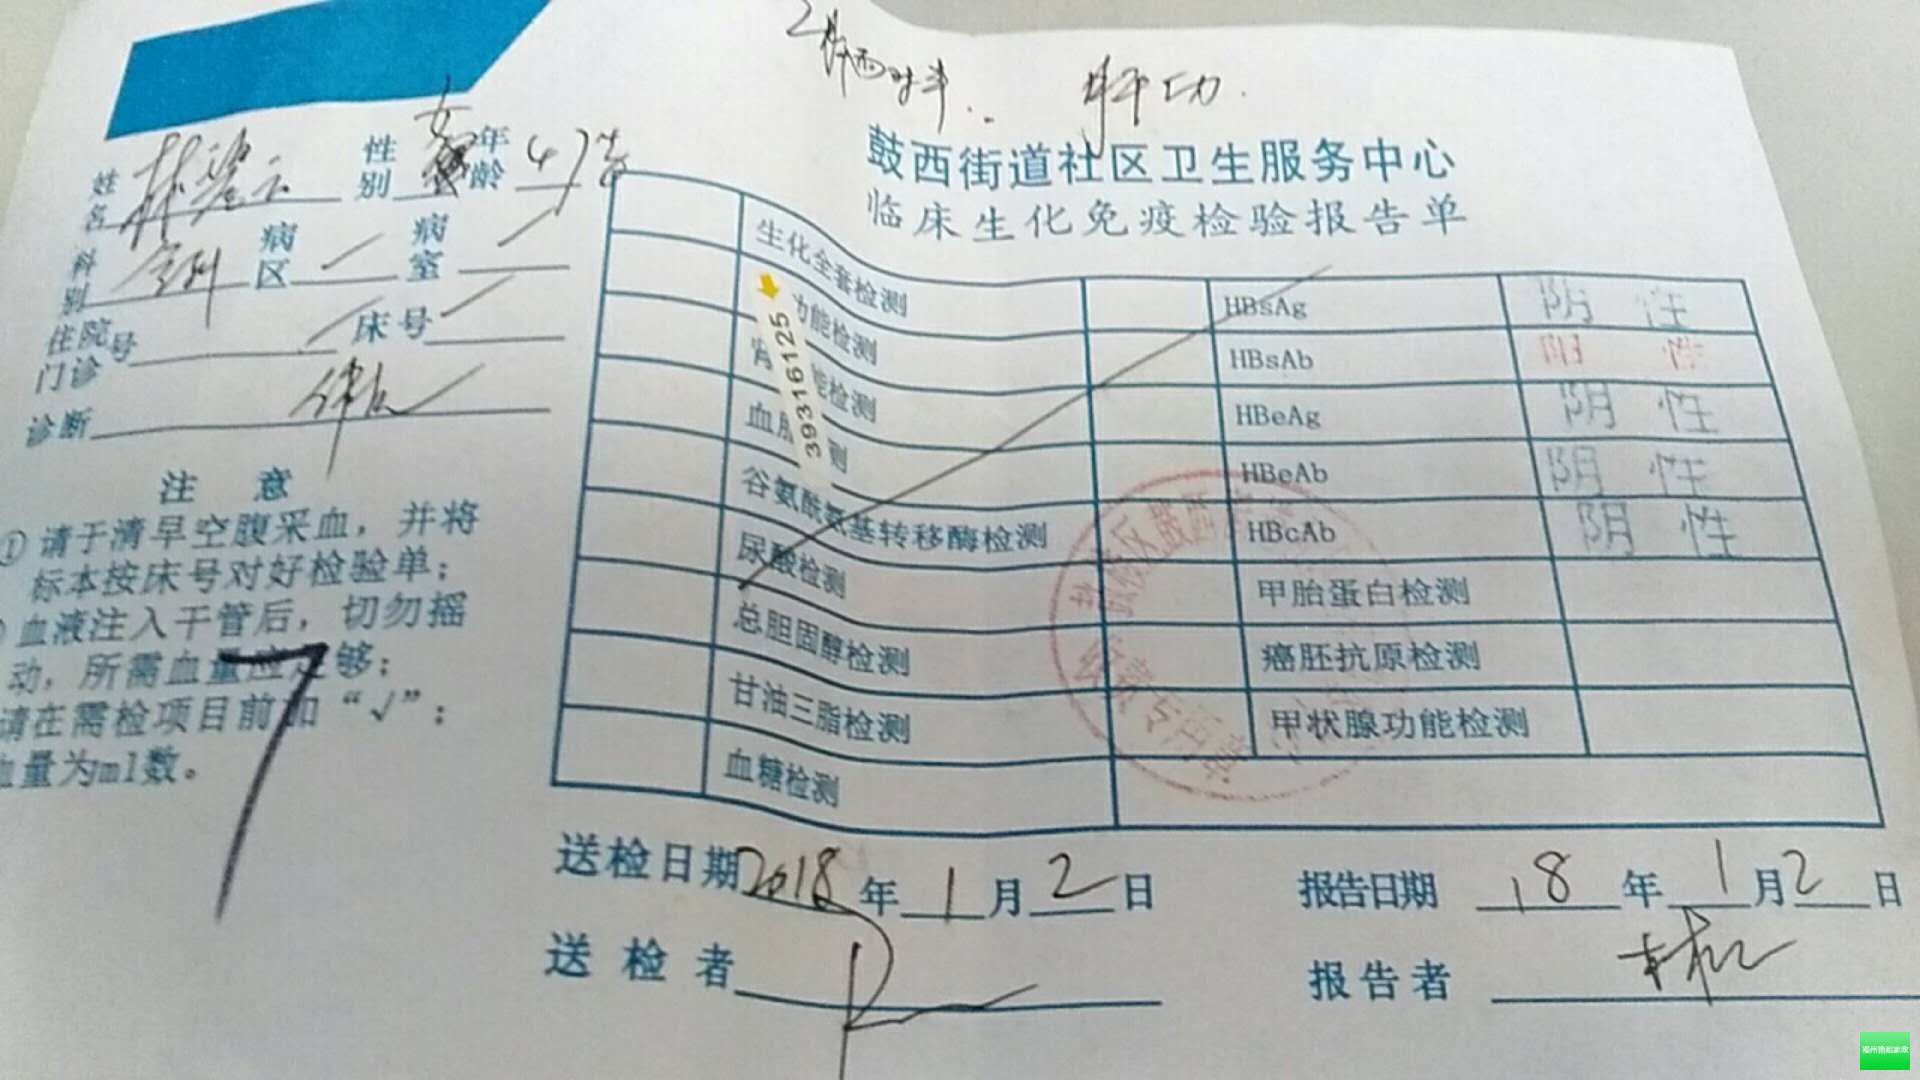 肝功.
鼓西街道社区卫生服务中心
临床生化免疫检验报告单
姓名 性别 女 年龄 47岁
科别 病区 病室
住院号 床号
门诊
诊断 体检
注 意
① 请于清早空腹采血，并将
标本按床号对好检验单；
血液注入干管后，切勿摇
动，所需血量应足够；
请在需检项目前加“√”：
血量为ml数。
7
39316125
生化全套检测
功能检测 HBsAg 阴 性
肾 能检测 HBsAb 阳 性
血脂 测 HBeAg 阴 性
谷氨酰氨基转移酶检测 HBeAb 阴 性
尿酸检测 HBcAb 阴 性
总胆固醇检测 甲胎蛋白检测
甘油三脂检测 癌胚抗原检测
血糖检测 甲状腺功能检测
送检日期 2018 年 1 月 2 日 报告日期 18 年 1 月 2 日
送检者 报告者
福州艳姐家政